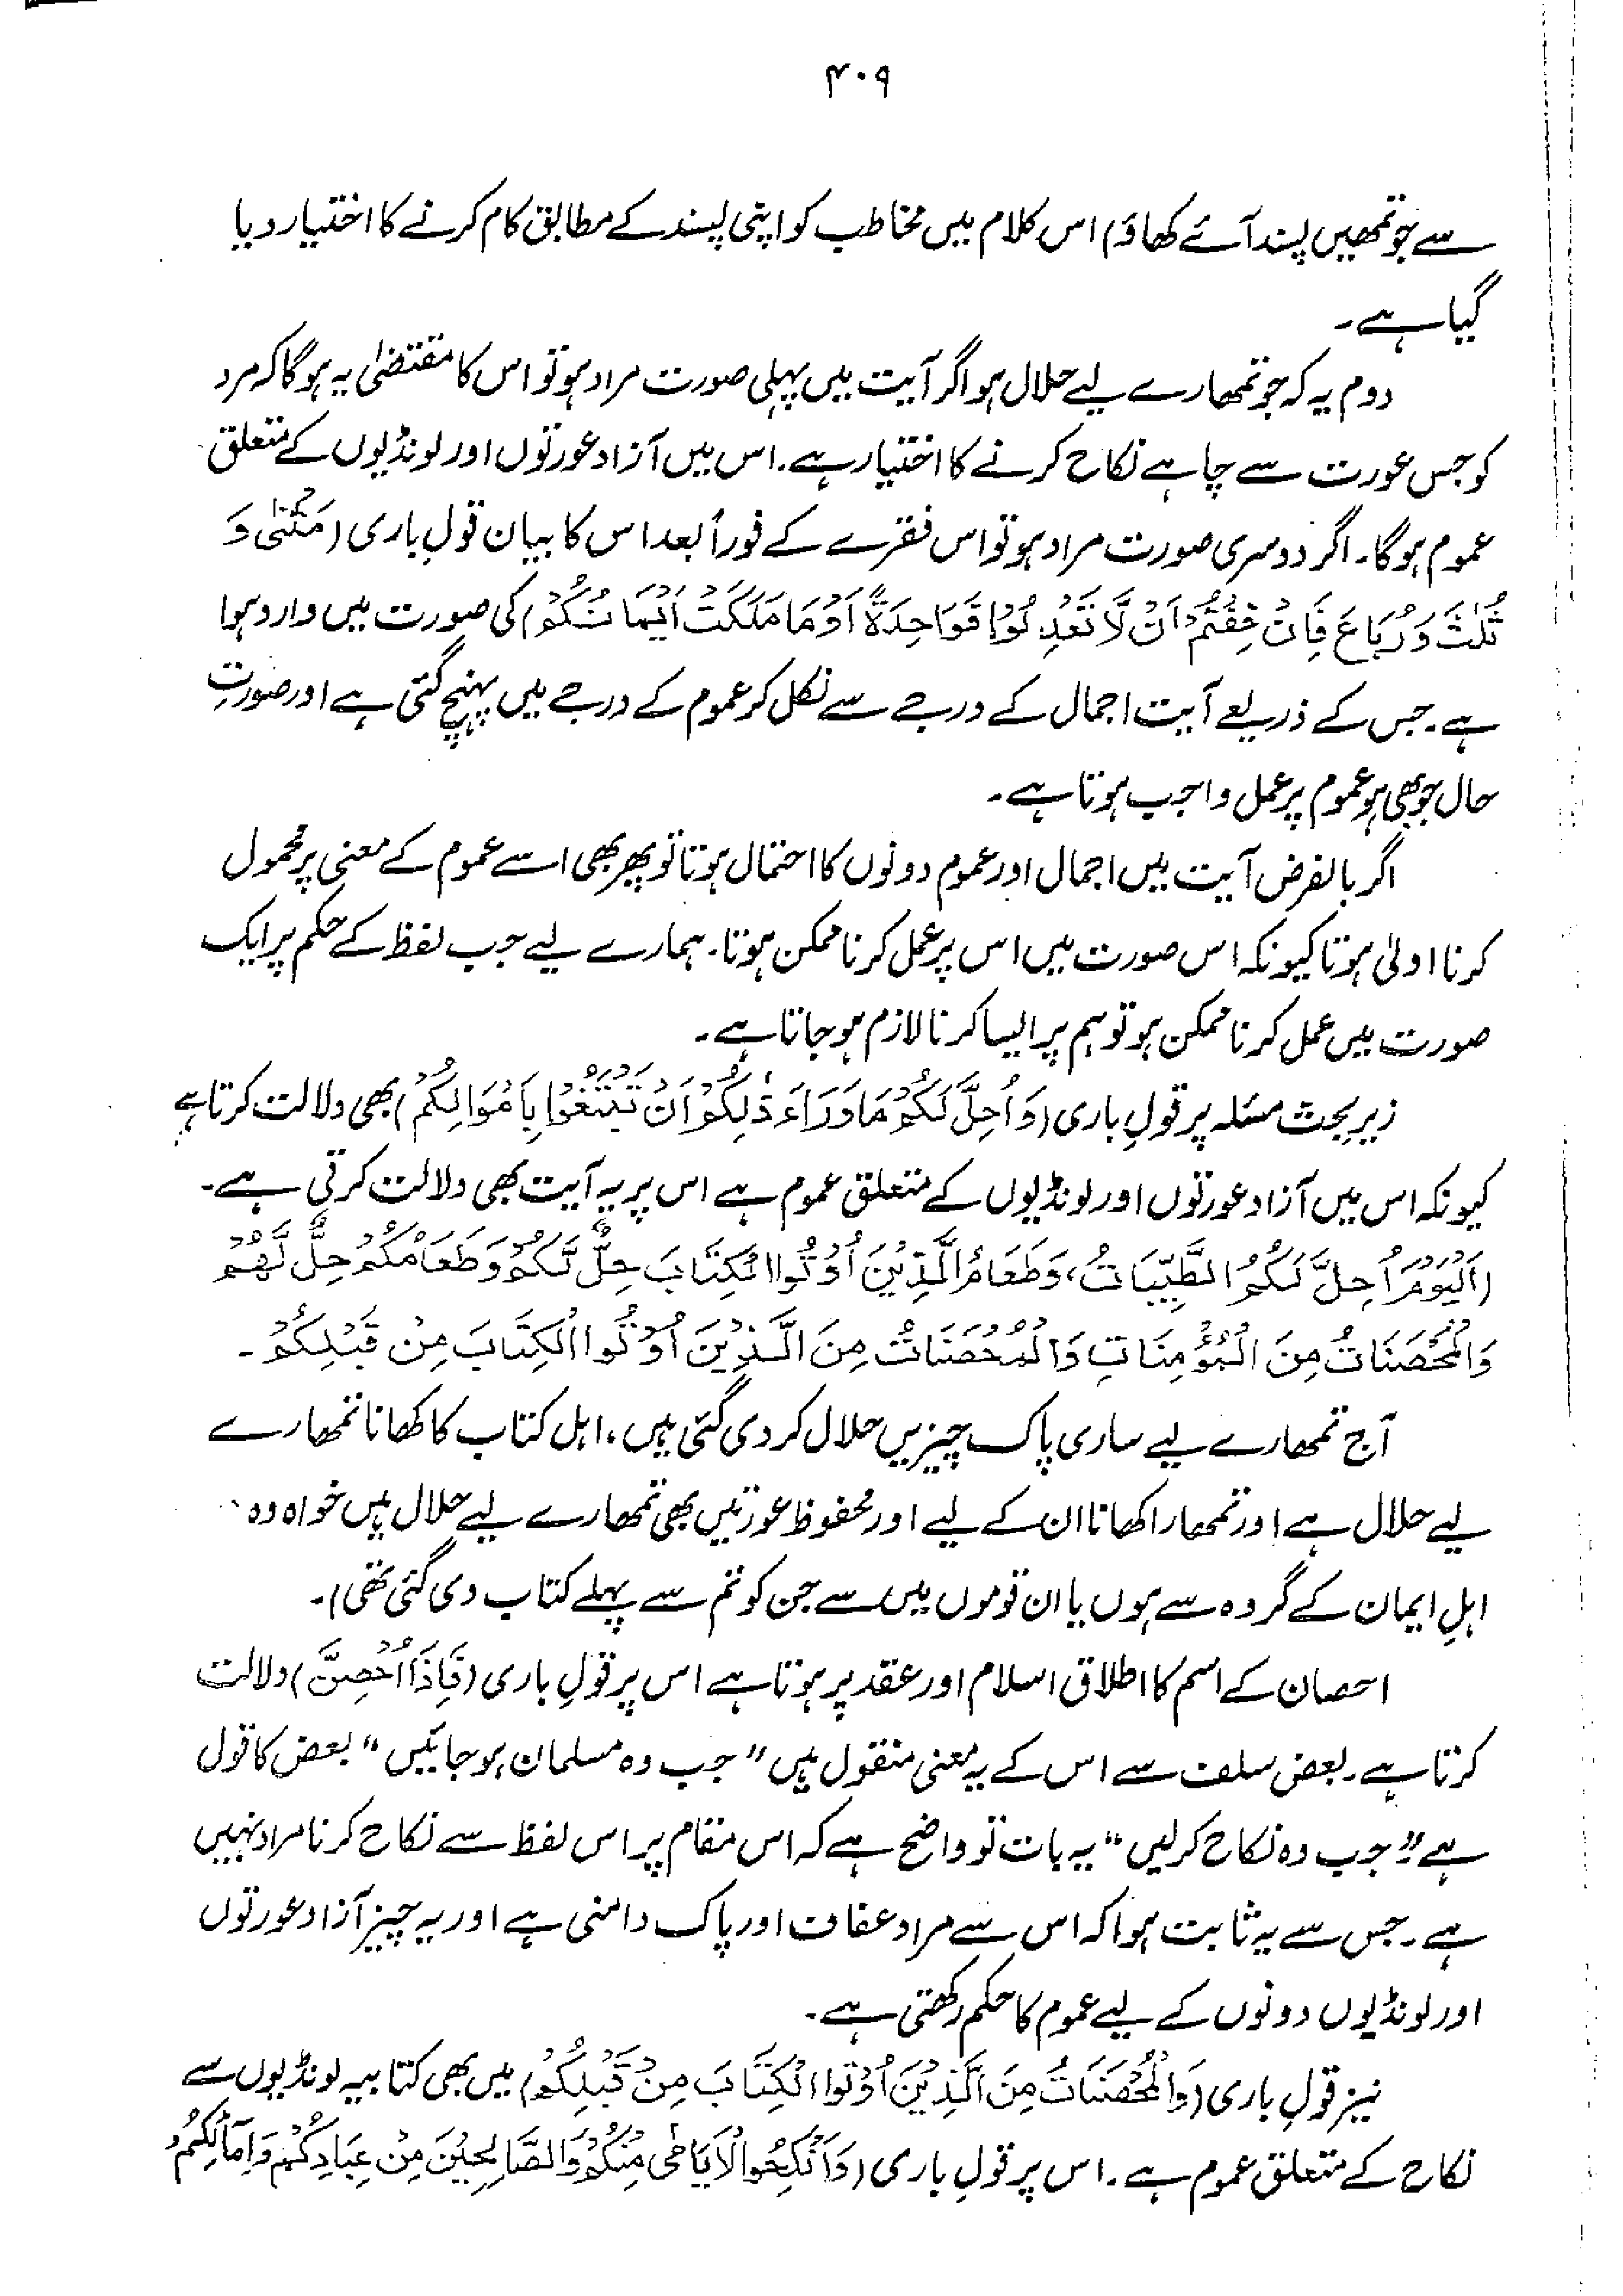 ۴۰۹
سے جو تمھیں پسند آئے کھاؤ) اس کلام میں مخاطب کو اپنی پسند کے مطابق کام کرنے کا اختیار دیا
گیا ہے۔
دوم یہ کہ جو تمھارے لیے حلال ہو اگر آیت میں پہلی صورت مراد ہو تو اس کا مقتضیٰ یہ ہوگا کہ مرد
کو جس عورت سے چاہے نکاح کرنے کا اختیار ہے۔ اس میں آزاد عورتوں اور لونڈیوں کے متعلق
عموم ہوگا۔ اگر دوسری صورت مراد ہو تو اس فقرے کے فوراً بعد اس کا بیان قولِ باری (مَثْنٰی وَ
ثُلٰثَ وَرُبَاعَ فَاِنْ خِفْتُمْ اَنْ لَّا تَعْدِلُوْا فَوَاحِدَةً اَوْ مَا مَلَکَتْ اَیْمَانُکُمْ) کی صورت میں وارد ہوا
ہے۔ جس کے ذریعے آیت اجمال کے درجے سے نکل کر عموم کے درجے میں پہنچ گئی ہے اور صورتِ
حال جو بھی ہو عموم پر عمل واجب ہوتا ہے۔
اگر بالفرض آیت میں اجمال اور عموم دونوں کا احتمال ہوتا تو پھر بھی اسے عموم کے معنی پر محمول
کرنا اولیٰ ہوتا کیونکہ اس صورت میں اس پر عمل کرنا ممکن ہوتا۔ ہمارے لیے جب لفظ کے حکم پر ایک
صورت میں عمل کرنا ممکن ہو تو ہم پر ایسا کرنا لازم ہو جاتا ہے۔
زیر بحث مسئلہ پر قولِ باری (وَاُحِلَّ لَکُمْ مَا وَرَاءَ ذٰلِکُمْ اَنْ تَبْتَغُوْا بِاَمْوَالِکُمْ) بھی دلالت کرتا ہے
کیونکہ اس میں آزاد عورتوں اور لونڈیوں کے متعلق عموم ہے اس پر یہ آیت بھی دلالت کرتی ہے۔
(اَلْیَوْمَ اُحِلَّ لَکُمُ الطَّیِّبَاتُ، وَطَعَامُ الَّذِیْنَ اُوْتُوا الْکِتَابَ حِلٌّ لَّکُمْ وَطَعَامُکُمْ حِلٌّ لَّهُمْ
وَالْمُحْصَنَاتُ مِنَ الْمُؤْمِنَاتِ وَالْمُحْصَنَاتُ مِنَ الَّذِیْنَ اُوْتُوا الْکِتَابَ مِنْ قَبْلِکُمْ۔
آج تمھارے لیے ساری پاک چیزیں حلال کر دی گئی ہیں، اہل کتاب کا کھانا تمھارے
لیے حلال ہے اور تمھارا کھانا ان کے لیے اور محفوظ عورتیں بھی تمھارے لیے حلال ہیں خواہ وہ
اہلِ ایمان کے گروہ سے ہوں یا ان قوموں میں سے جن کو تم سے پہلے کتاب دی گئی تھی)۔
احصان کے اسم کا اطلاق اسلام اور عقد پر ہوتا ہے اس پر قولِ باری (فَاِذَا اُحْصِنَّ) دلالت
کرتا ہے۔ بعض سلف سے اس کے یہ معنی منقول ہیں "جب وہ مسلمان ہو جائیں" بعض کا قول
ہے "جب وہ نکاح کرلیں" یہ بات تو واضح ہے کہ اس مقام پر اس لفظ سے نکاح کرنا مراد نہیں
ہے۔ جس سے یہ ثابت ہوا کہ اس سے مراد عفات اور پاک دامنی ہے اور یہ چیز آزاد عورتوں
اور لونڈیوں دونوں کے لیے عموم کا حکم رکھتی ہے۔
نیز قولِ باری (وَالْمُحْصَنَاتُ مِنَ الَّذِیْنَ اُوْتُوا الْکِتَابَ مِنْ قَبْلِکُمْ) میں بھی کتابیہ لونڈیوں سے
نکاح کے متعلق عموم ہے۔ اس پر قولِ باری (وَاَنْکِحُوا الْاَیَامٰی مِنْکُمْ وَالصَّالِحِیْنَ مِنْ عِبَادِکُمْ وَاِمَائِکُمْ